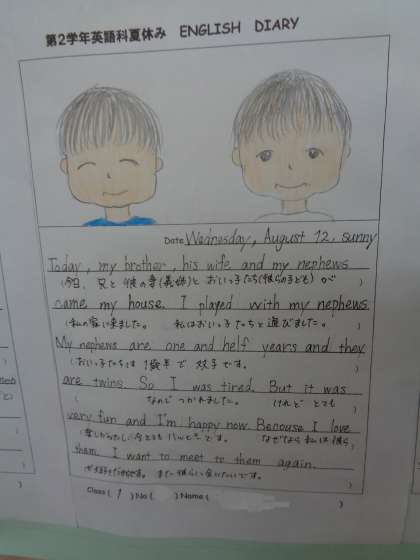 第2学年英語科夏休み ENGLISH DIARY
Date Wednesday, August 12, sunny
Today, my brother, his wife and my nephews
(今日、兄と彼の妻(義姉)とおいっ子たち(彼らの子ども)が
came my house. I played with my nephews
(私の家に来ました。 私はおいっ子たちと遊びました。)
My nephews are one and helf years and they
(おいっ子たちは1歳半で双子です。
are twins. So I was tired. But it was
( なので つかれました。 けれど とても)
very fun and I'm happy now. Becouse I love
なぜなら私は彼ら
them. I want to meet to them again.
が大好きだからです。また彼らに会いたいです。
)
Class( 1 )No( )Name( )